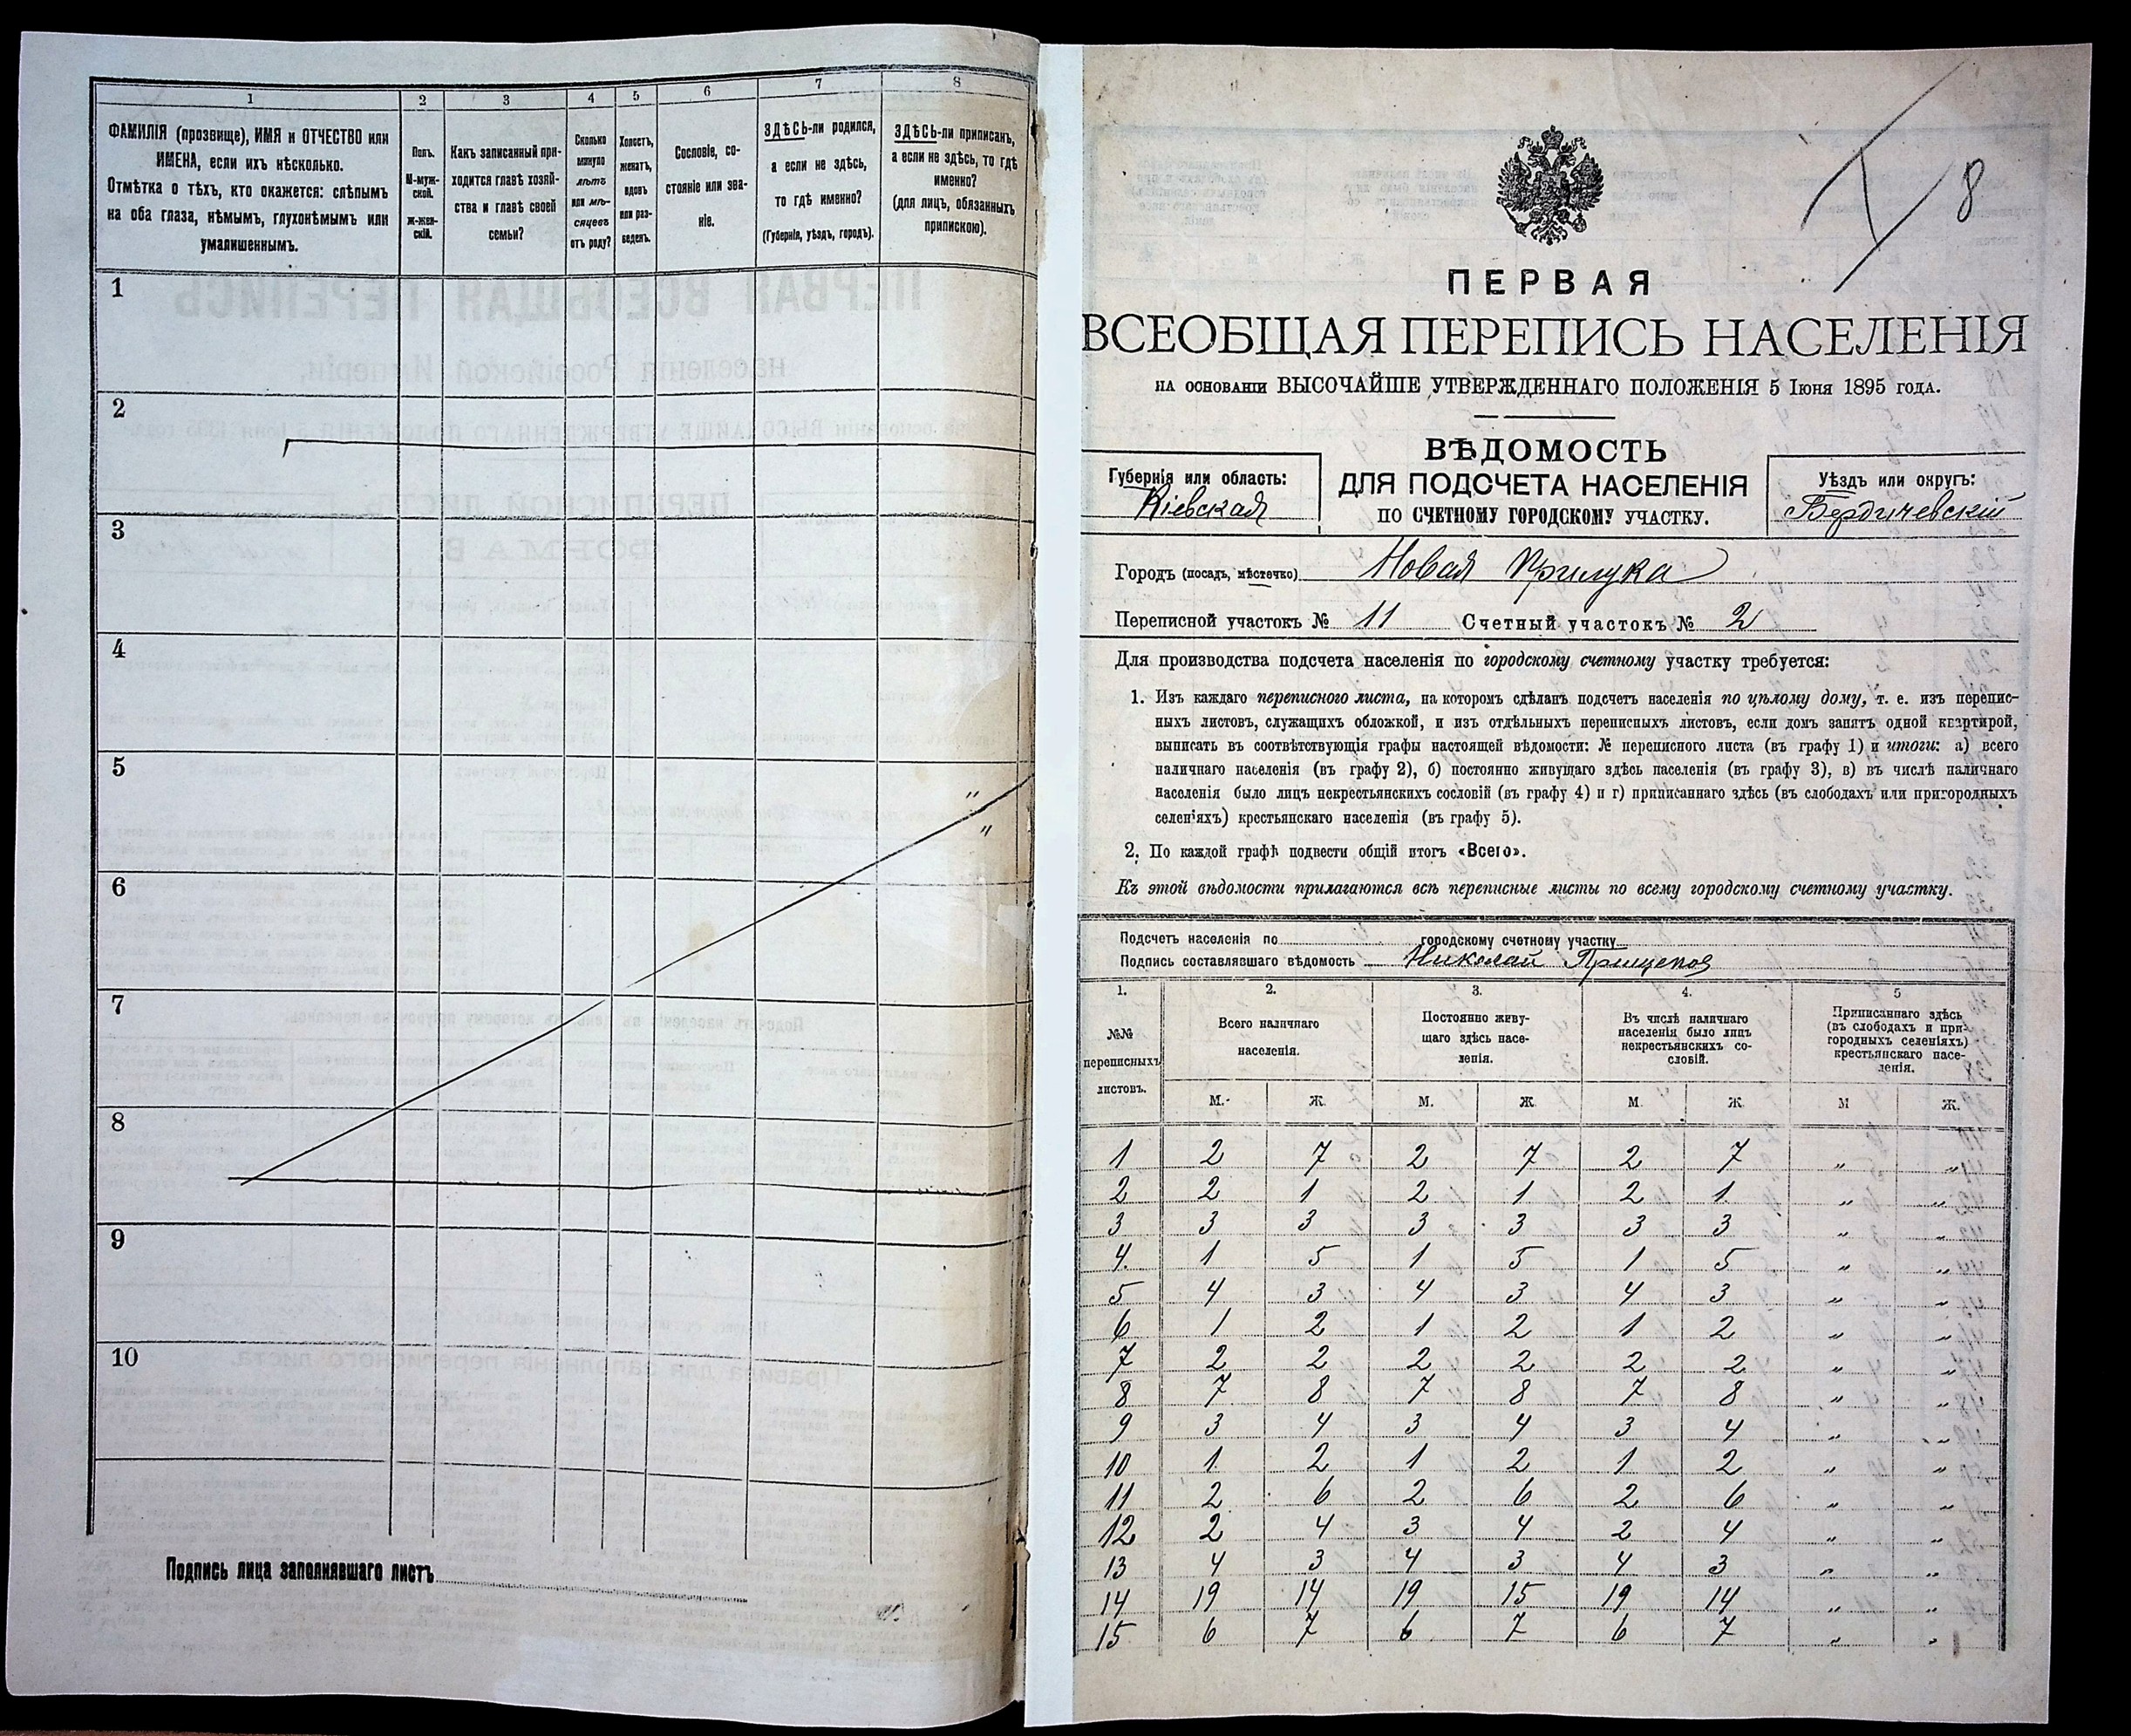 1 2 3 4 5 6 7 8
ФАМИЛІЯ (прозвище), ИМЯ и ОТЧЕСТВО или
ИМЕНА, если ихъ нѣсколько.
Отмѣтка о тѣхъ, кто окажется: слѣпымъ
на оба глаза, нѣмымъ, глухонѣмымъ или
умалишеннымъ.
Полъ.
М-муж-
ской.
Ж-жен-
скій.
Какъ записанный при-
ходится главѣ хозяй-
ства и главѣ своей
семьи?
Сколько
минуло
лѣтъ
или мѣ-
сяцевъ
отъ роду?
Холостъ,
женатъ,
вдовъ
или раз-
веденъ.
Сословіе, со-
стояніе или зва-
ніе.
ЗДѢСЬ-ли родился,
а если не здѣсь,
то гдѣ именно?
(Губернія, уѣздъ, городъ).
ЗДѢСЬ-ли приписанъ,
а если не здѣсь, то гдѣ
именно?
(для лицъ, обязанныхъ
припискою).
1
2
3
4
5
"
"
6
7
8
9
10
Подпись лица заполнявшаго листъ
8
ПЕРВАЯ
ВСЕОБЩАЯ ПЕРЕПИСЬ НАСЕЛЕНІЯ
НА ОСНОВАНІИ ВЫСОЧАЙШЕ УТВЕРЖДЕННАГО ПОЛОЖЕНІЯ 5 Іюня 1895 ГОДА.
ВѢДОМОСТЬ
ДЛЯ ПОДСЧЕТА НАСЕЛЕНІЯ
ПО СЧЕТНОМУ ГОРОДСКОМУ УЧАСТКУ.
Губернія или область:
Кіевская
Уѣздъ или округъ:
Бердичевскій
Городъ (посадъ, мѣстечко) Новая Прилука
Переписной участокъ № 11 Счетный участокъ № 2
Для производства подсчета населенія по городскому счетному участку требуется:
1. Изъ каждаго переписного листа, на которомъ сдѣланъ подсчетъ населенія по цѣлому дому, т. е. изъ перепис-
ныхъ листовъ, служащихъ обложкой, и изъ отдѣльныхъ переписныхъ листовъ, если домъ занятъ одной квартирой,
выписать въ соотвѣтствующія графы настоящей вѣдомости: № переписного листа (въ графу 1) и итоги: а) всего
наличнаго населенія (въ графу 2), б) постоянно живущаго здѣсь населенія (въ графу 3), в) въ числѣ наличнаго
населенія было лицъ некрестьянскихъ сословій (въ графу 4) и г) приписаннаго здѣсь (въ слободахъ или пригородныхъ
селеніяхъ) крестьянскаго населенія (въ графу 5).
2. По каждой графѣ подвести общій итогъ «Всего».
Къ этой вѣдомости прилагаются всѣ переписные листы по всему городскому счетному участку.
Подсчетъ населенія по городскому счетному участку
Подпись составлявшаго вѣдомость Николай Прищепов
1. 2. 3. 4. 5
№№
переписныхъ
листовъ.
Всего наличнаго
населенія.
Постоянно живу-
щаго здѣсь насе-
ленія.
Въ числѣ наличнаго
населенія было лицъ
некрестьянскихъ со-
словій.
Приписаннаго здѣсь
(въ слободахъ и при-
городныхъ селеніяхъ)
крестьянскаго насе-
ленія.
М. Ж. М. Ж. М. Ж. М Ж.
1 2 7 2 7 2 7 " "
2 2 1 2 1 2 1 " "
3 3 3 3 3 3 3 " "
4. 1 5 1 5 1 5 " "
5 4 3 4 3 4 3 " "
6 1 2 1 2 1 2 " "
7 2 2 2 2 2 2 " "
8 7 8 7 8 7 8 " "
9 3 4 3 4 3 4 " "
10 1 2 1 2 1 2 " "
11 2 6 2 6 2 6 " "
12 2 4 3 4 2 4 " "
13 4 3 4 3 4 3 " "
14 19 14 19 15 19 14 " "
15 6 7 6 7 6 7 " "